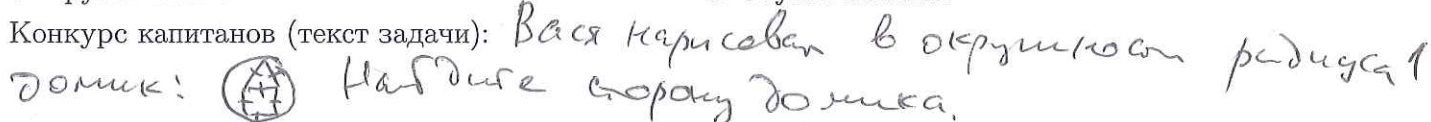 Конкурс капитанов (текст задачи): Вася нарисовал в окружности радиуса 1
домик: Найдите сторону домика.